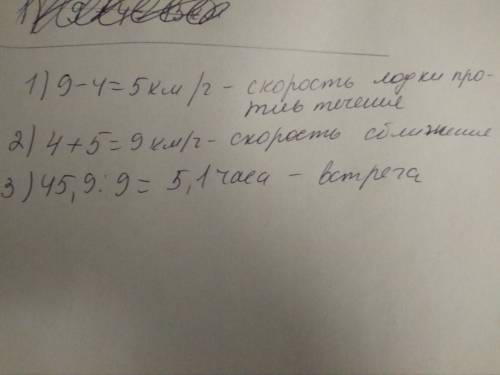 1) 9-4=5 км/г - скорость лодки про-
тив течения
2) 4+5=9 км/г- скорость сближения
3) 45,9:9= 5,1 часа - встреча